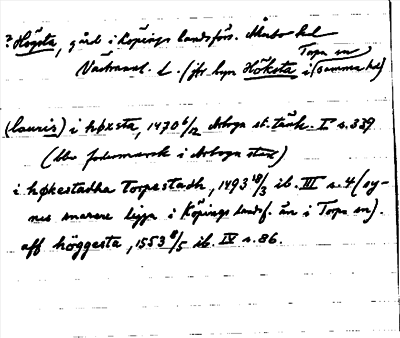 ? Högsta, gård i Köpings landsförs. Åkerbo hd
Torpa sn
Västmanl. L. (jfr byn Höksta i (samma hd)
(lauris) i høxsta, 1470 6/12 Arboga st. tänk. I s. 339
(bbr fodermarsk i Arboga stad)
i høkestadha Torpestadh, 1493 18/3 ib. III s. 4 (sy-
nes snarare ligga i Köpings landsf. än i Torpa sn).
aff höggesta, 1553 8/5 ib. IV s. 86.